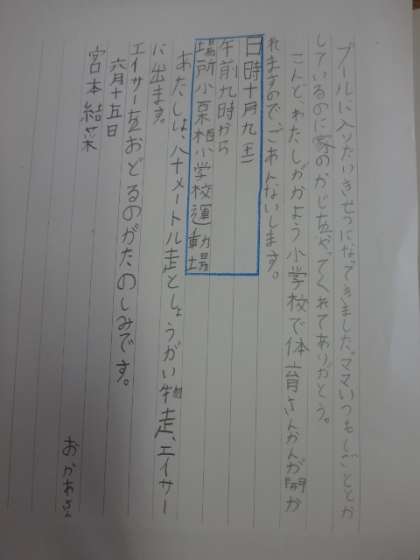 プールに入りたいきせつになってきました。ママいつもしごととか
しているのに家のかじをやってくれてありがとう。
こんど、わたしがかよう小学校で体育さんかんが開か
れますので、ごあんないします。
日時十月九(土)
午前九時から
場所小栗栖小学校運動場
あたしは、八十メートル走としょうがい物走、エイサー
に出ます。
エイサーをおどるのがたのしみです。
六月十五日
宮本結菜
おかあさん